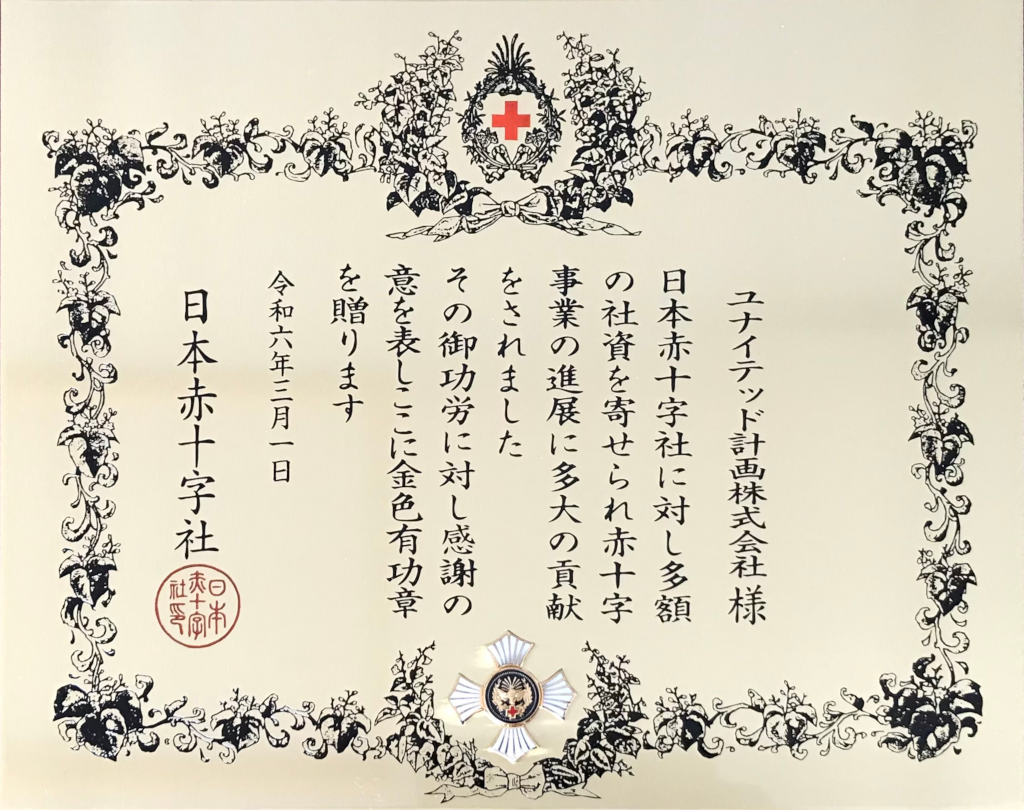 ユナイテッド計画株式会社 様
日本赤十字社に対し多額
の社資を寄せられ赤十字
事業の進展に多大の貢献
をされました
その御功労に対し感謝の
意を表しここに金色有功章
を贈ります
令和六年三月一日
日本赤十字社
日本
赤十字
社印